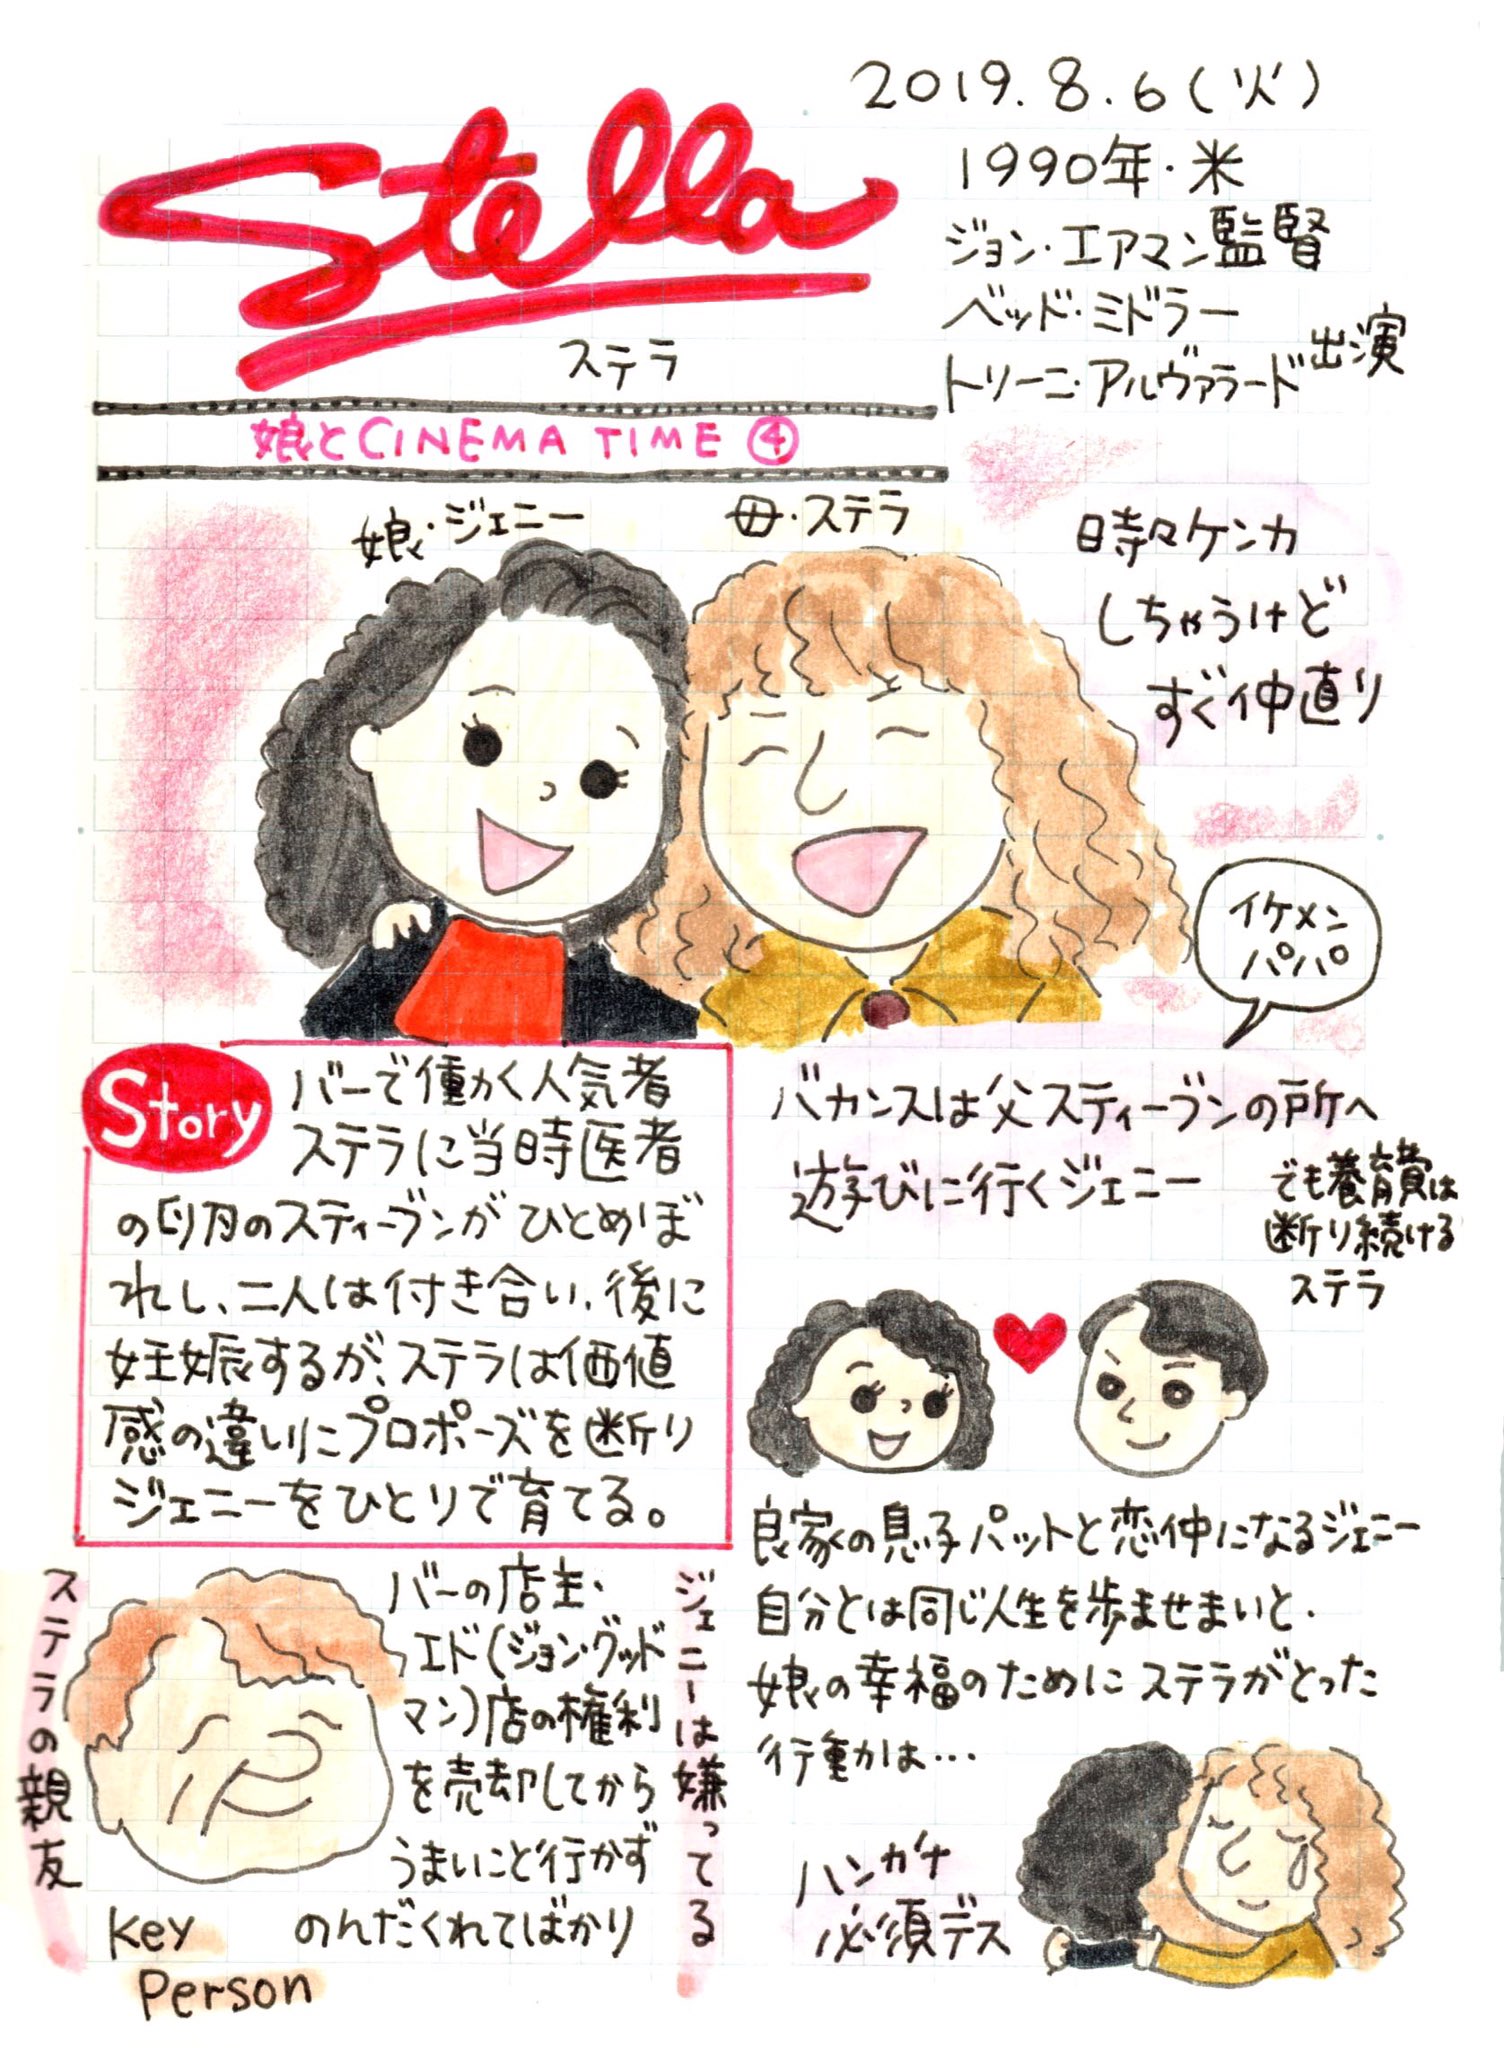 2019.8.6(火)
Stella
ステラ
1990年・米
ジョン・エアマン監督
ベッド・ミドラー
トリーニ・アルヴァラード出演
娘とCINEMA TIME ④
娘・ジェニー
母・ステラ
時々ケンカ
しちゃうけど
すぐ仲直り
イケメン
パパ
Story
バーで働く人気者
ステラに当時医者
の卵のスティーブンがひとめぼ
れし、二人は付き合い、後に
妊娠するが、ステラは価値
感の違いにプロポーズを断り
ジェニーをひとりで育てる。
バカンスは父スティーブンの所へ
遊びに行くジェニー
でも養育費は
断り続ける
ステラ
良家の息子パットと恋仲になるジェニー
自分とは同じ人生を歩ませまいと、
娘の幸福のためにステラがとった
行動は…
ハンカチ
必須デス
ステラの親友
バーの店主・
エド(ジョン・グッド
マン)店の権利
を売却してから
うまいこと行かず
のんだくれてばかり
ジェニーは嫌ってる
Key
Person